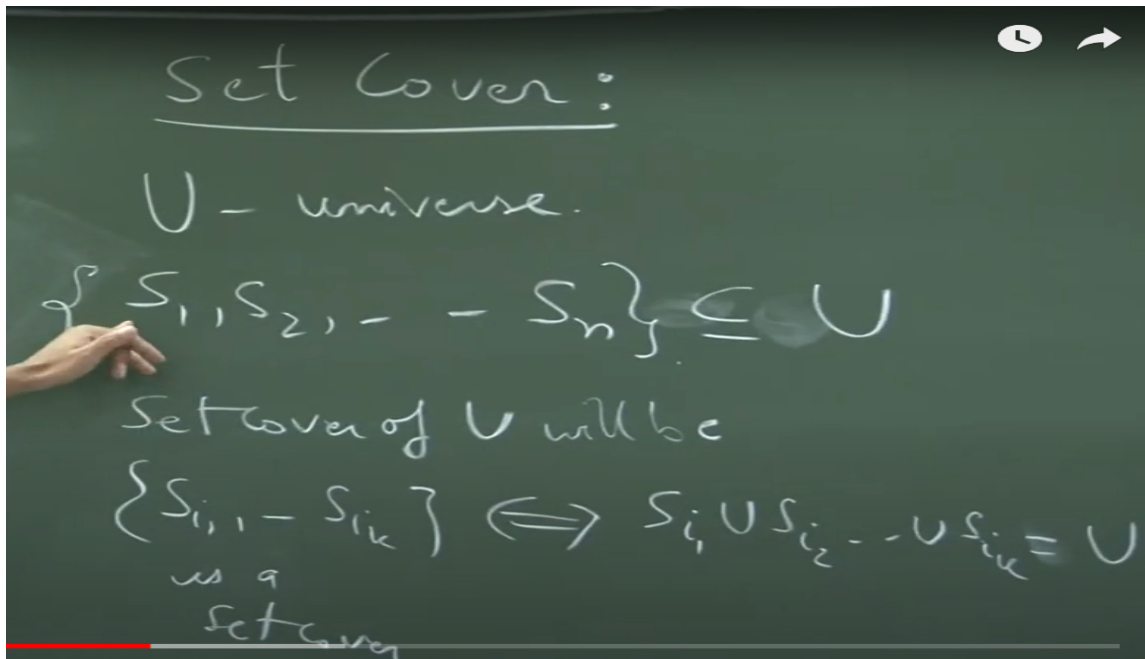 Set Cover :
U - universe.
{ S₁, S₂, - - Sₙ } ⊆ U
Set cover of U will be
{ Sᵢ₁, - Sᵢₖ } ⟺ Sᵢ₁ ∪ Sᵢ₂ - - ∪ Sᵢₖ = U
is a
Set cover